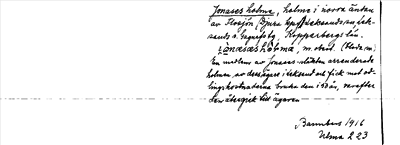 Jonases holme, holme i norra ändan
av Flosjön Bjura kpg, Leksands su, Lek-
sands o. Gagnefs tg, Kopparbergs län.
jònasəs hòlmə, m. obest. (bleda, m.)
En medlem av Jonases släkten arrenderade
holmen av dess ägare i Leksand och fick mot od-
lingskostnaderna bruka den i 50 år, varefter
den återgick till ägaren
Bannbers 1916
Ulma 223